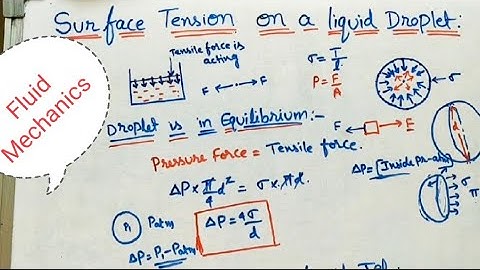 Surface Tension on a liquid Droplet:
Fluid
Mechanics
Tensile force is
acting
F F
σ = T/l
P = F/A
σ
Droplet is in Equilibrium:-
F F
d
Pressure Force = Tensile force.
ΔP = [Inside Pr-atm]
ΔP × π/4 d² = σ × πd.
σ
π
P₁ Patm
ΔP = 4σ/d
ΔP = P₁ - Patm